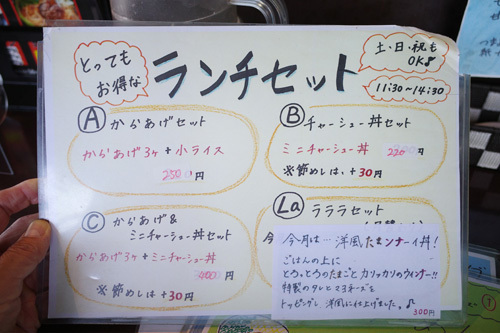 とっても
お得な
ランチセット
土・日・祝も
OK♪
11:30〜14:30
Ⓐ からあげセット
からあげ3ヶ+小ライス
250円
Ⓑ チャーシュー丼セット
ミニチャーシュー丼 220円
※節めしは、+30円
Ⓒ からあげ&
ミニチャーシュー丼セット
からあげ3ヶ+ミニチャーシュー丼
400円
※節めしは+30円
La ラララセット
今月は… 洋風たまンナーイ丼!
ごはんの上に
とろっとろのたまごとカリッカリのウィンナー!!
特製のタレとマヨネーズを
トッピングし洋風に仕上げました。♪
300円